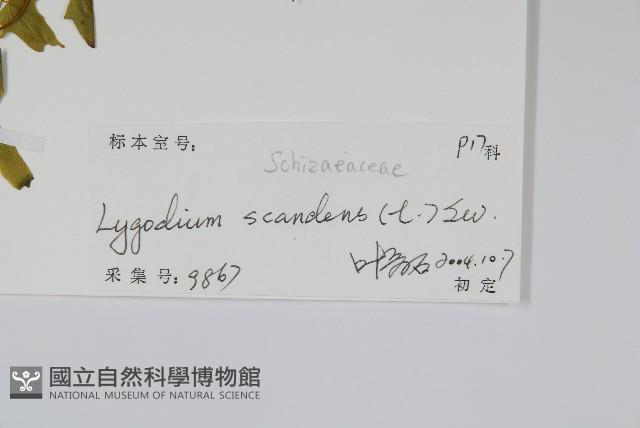 标本室号:
P17科
Schizaeaceae
Lygodium scandens (L.) Sw.
采集号: 9867
叶 石 2004.10.7
初定
國立自然科學博物館
NATIONAL MUSEUM OF NATURAL SCIENCE